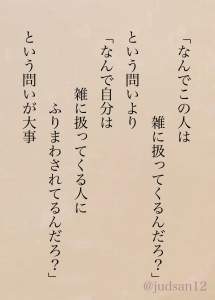 「なんでこの人は
雑に扱ってくるんだろ？」
という問いより
「なんで自分は
雑に扱ってくる人に
ふりまわされてるんだろ？」
という問いが大事
@judsan12